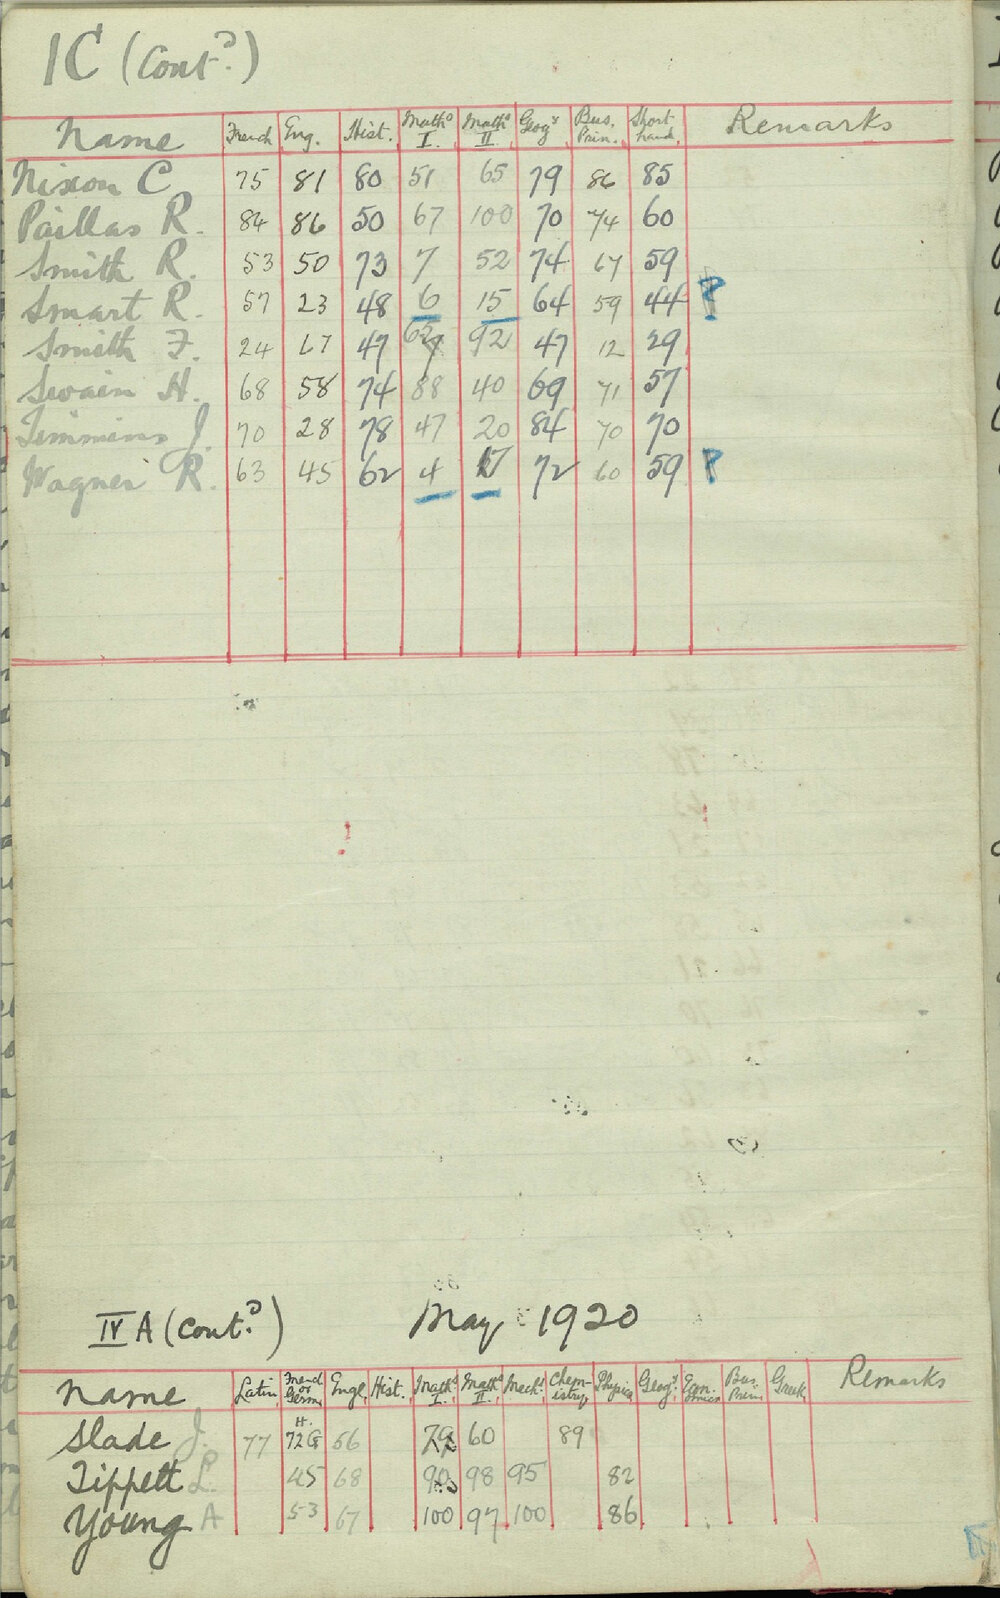 1C (Cont.d)
Name French Eng. Hist. Maths I. Maths II. Geog.y Bus. Prin. Short hand. Remarks
Nixon C 75 81 80 51 65 79 86 85
Paillas R. 84 86 50 67 100 70 74 60
Smith R. 53 50 73 7 52 74 67 59
Smart R. 57 23 48 6 15 64 59 44 ?
Smith F. 24 67 47 92 47 12 29
Swain H. 68 58 74 88 40 69 71 57
Timmins J. 70 28 78 47 20 84 70 70
Wagner R. 63 45 62 4 17 72 60 59 ?
IV A (Cont.d) May 1920
Name Latin French or Germ. Engl. Hist. Maths I. Maths II. Mechs. Chemistry Physics Geog.y Economics Bus. Prin. Greek Remarks
Slade J. 77 H. 72 G 66 60 89
Tippett L. 45 68 90 98 95 82
Young A 53 67 100 97 100 86